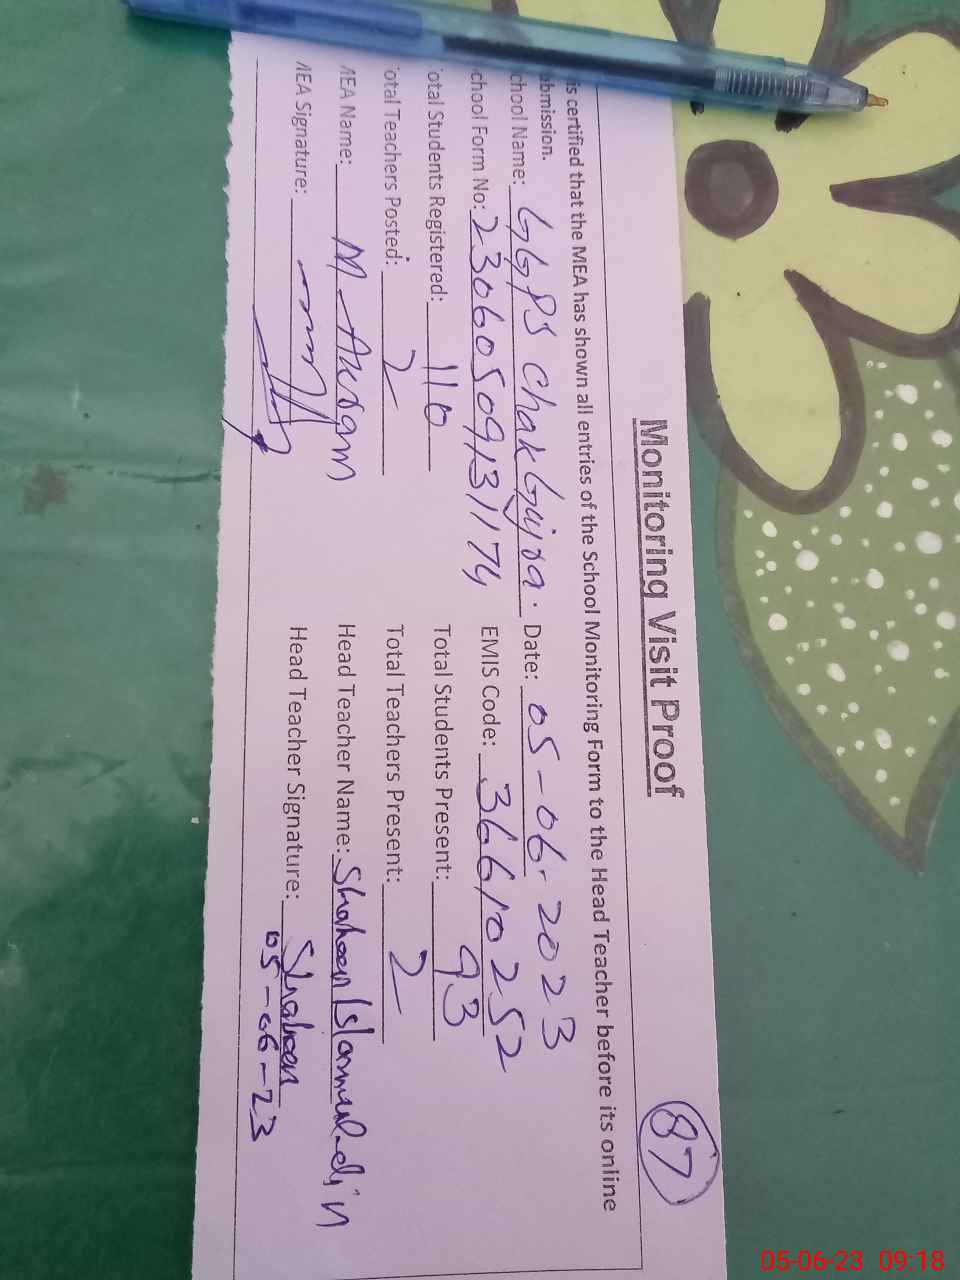 87
Monitoring Visit Proof
is certified that the MEA has shown all entries of the School Monitoring Form to the Head Teacher before its online
ubmission.
chool Name: GGPS Chak Gujra. Date: 05-06-2023
chool Form No: 23060509131174 EMIS Code: 36610252
otal Students Registered: 110 Total Students Present: 93
otal Teachers Posted: 2 Total Teachers Present: 2
MEA Name: M. Akram Head Teacher Name: Shaheen Islamuldin
MEA Signature: Head Teacher Signature: Shaheen
05-06-23
05-06-23 09:18